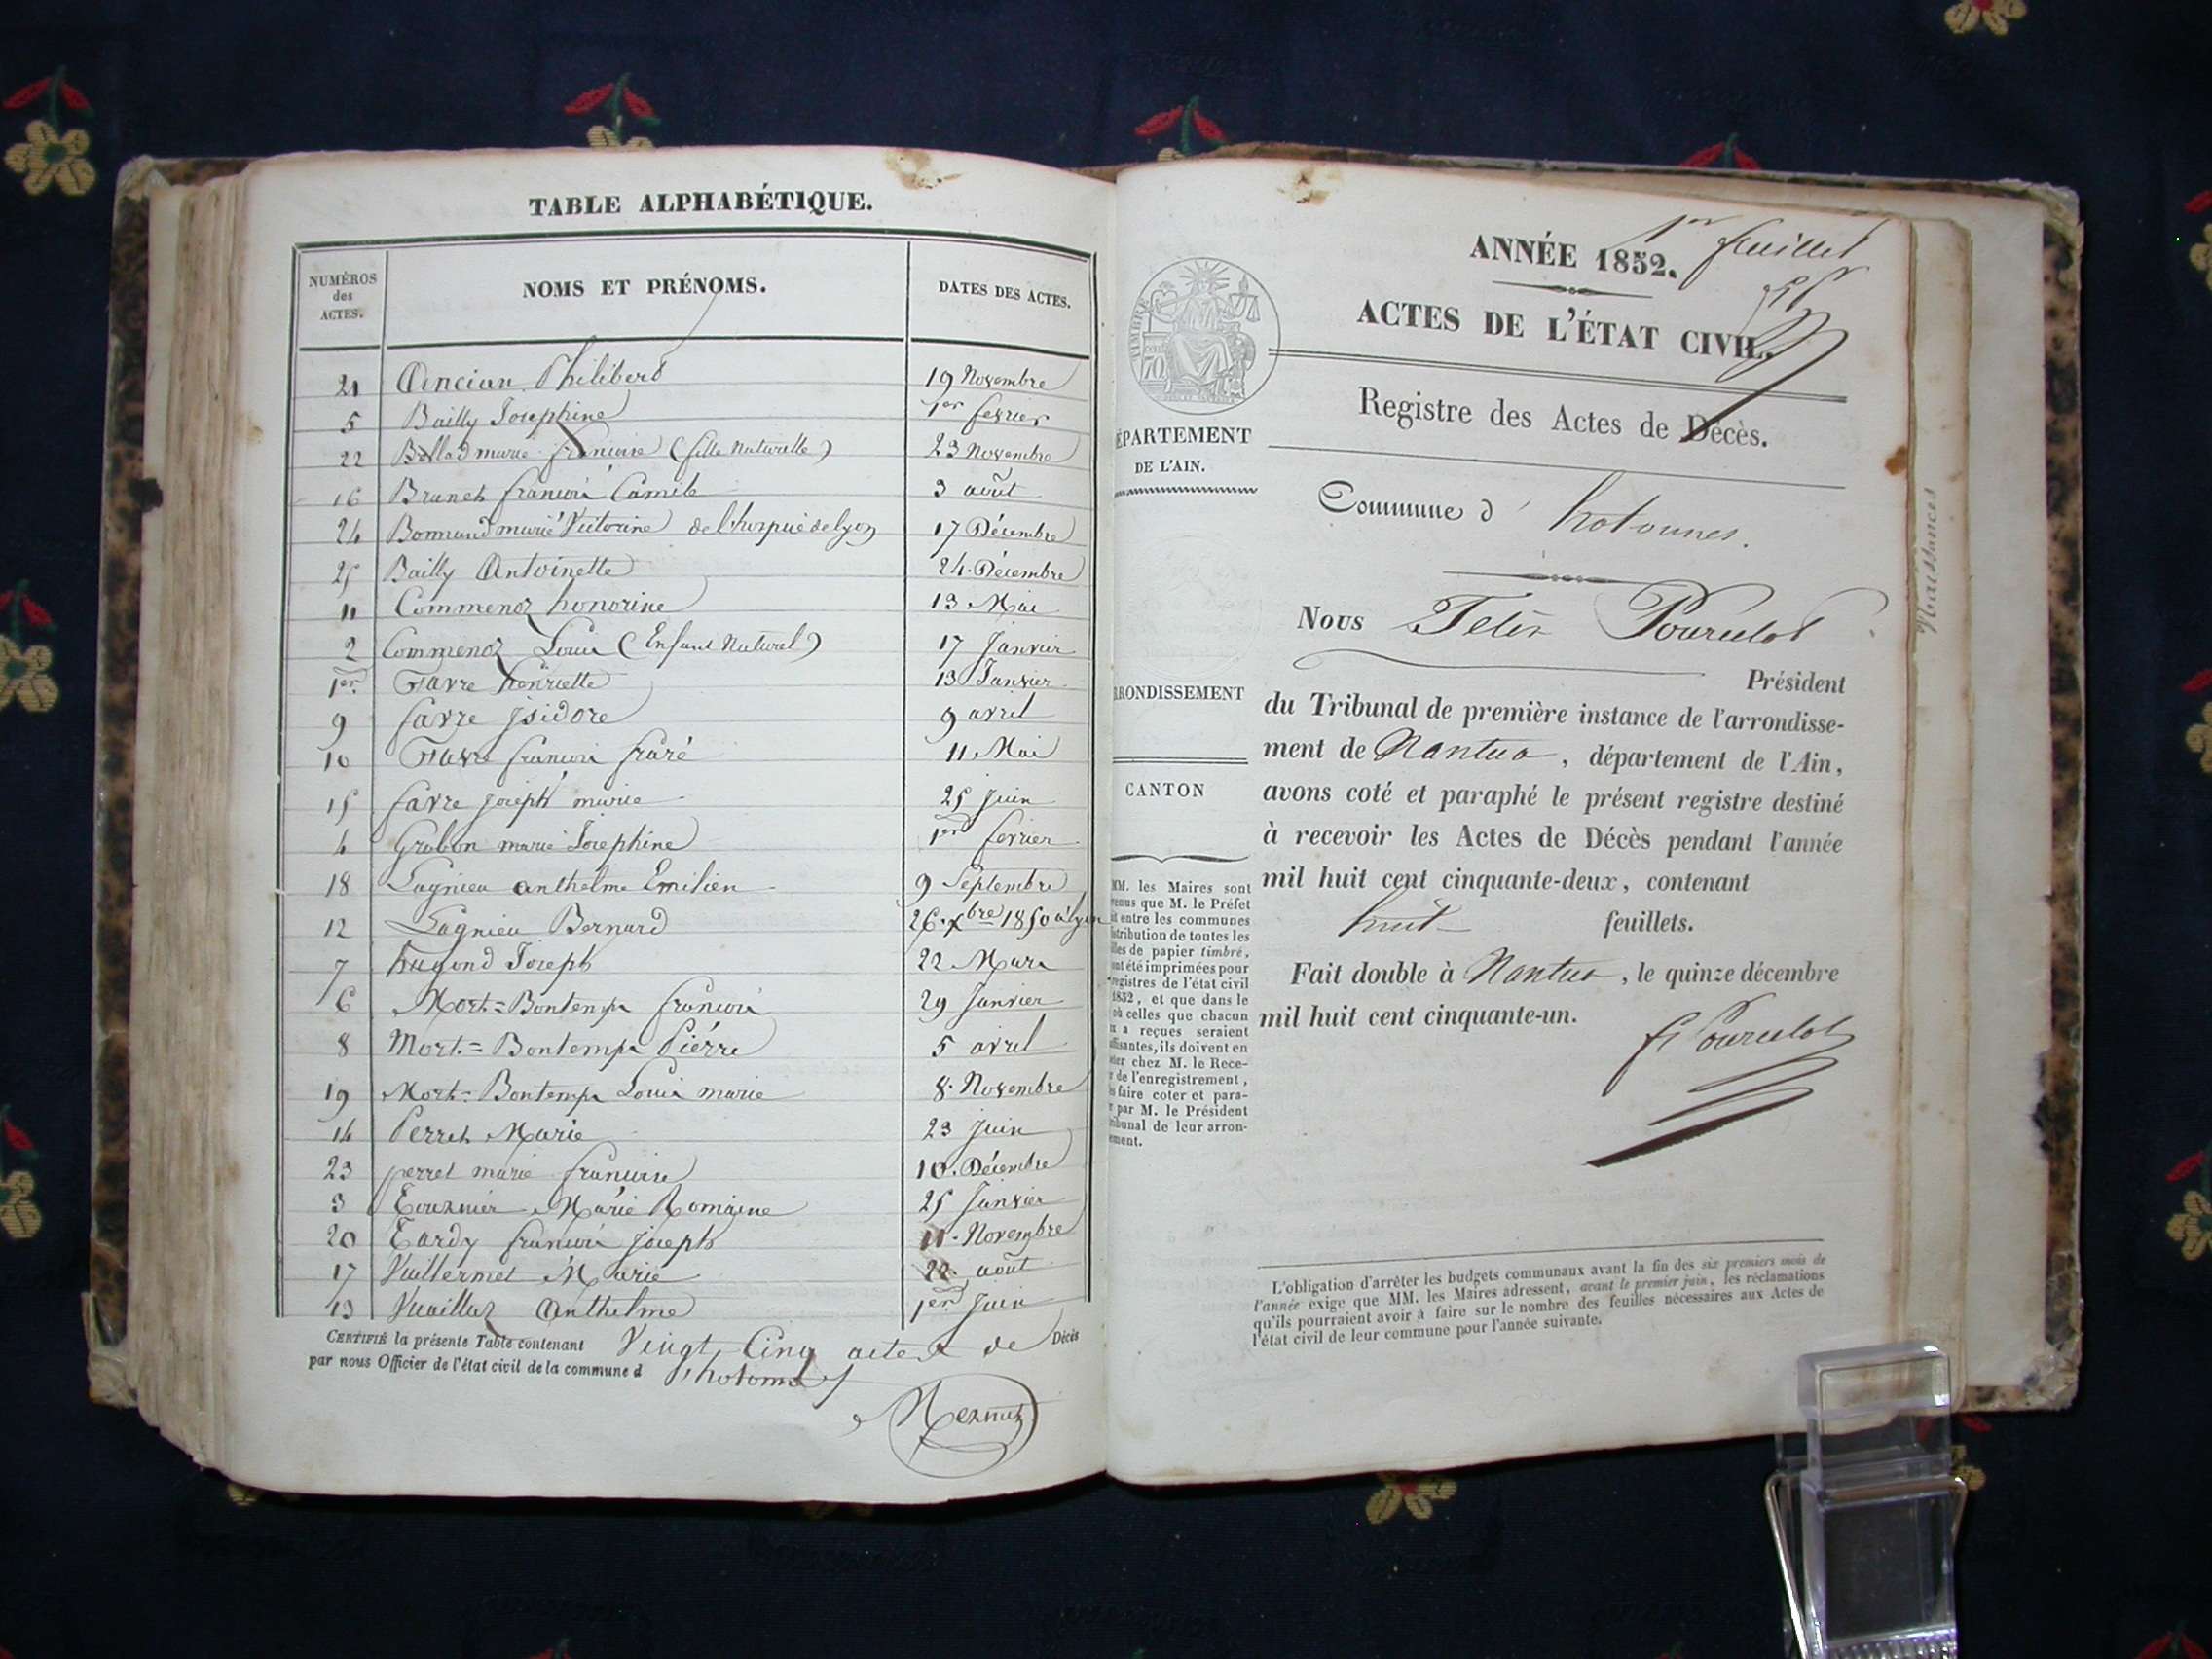 TABLE ALPHABÉTIQUE.
NUMÉROS des ACTES. NOMS ET PRÉNOMS. DATES DES ACTES.
21 Ancian Philibert 19 Novembre
5 Bailly Josephine 1er fevrier
22 Ballad marie françoise (fille Naturelle) 23 Novembre
16 Brunet françois Camile 3 août
24 Bornand marie Victorine de l'hospice de lyon 17 Décembre
25 Bailly Antoinette 24. Décembre
11 Commenoz honorine 13 Mai
2 Commenoz Louis (Enfant Naturel) 17 Janvier
1er. Favre henriette 13 Janvier
9 favre Isidore 9 avril
10 Favre françois 11 Mai
15 favre joseph marie 25 juin
4 Grobon marie Josephine 1er fevrier
18 Lagnieu anthelme Emilien 9 Septembre
12 Lagnieu Bernard 26. Xbre 1850 à lyon
7 hugond Joseph 22 Mars
6 Mort=Bontemps françois 29 Janvier
8 Mort.=Bontemps Piérre 5 avril
19 Mort=Bontemps Louis marie 8. Novembre
14 Perret Marie 23 juin
23 perret marie françoise 10. Décembre
3 Tournier Marie Romaine 25 Janvier
20 Tardy françois joseph 11. Novembre
17 Vuillermet Marie 22. août
13 Vuaillaz Anthelme 1er Juin
CERTIFIÉ la présente Table contenant Vingt Cinq actes de Décès
par nous Officier de l'état civil de la commune d'hotonnes
Mermet
1er feuillet
ANNÉE 1852.
ACTES DE L'ÉTAT CIVIL.
Registre des Actes de Décès.
TIMBRE
70
ÉPARTEMENT
DE L'AIN.
RRONDISSEMENT
CANTON
MM. les Maires sont
venus que M. le Préfet
it entre les communes
stribution de toutes les
lles de papier timbré,
ont été imprimées pour
registres de l'état civil
1852, et que dans le
où celles que chacun
ux a reçues seraient
ffisantes, ils doivent en
eter chez M. le Rece-
r de l'enregistrement,
es faire coter et para-
r par M. le Président
ribunal de leur arron-
ement.
Commune d'hotonnes.
Nous Felix Pourcelot
Président
du Tribunal de première instance de l'arrondisse-
ment de Nantua, département de l'Ain,
avons coté et paraphé le présent registre destiné
à recevoir les Actes de Décès pendant l'année
mil huit cent cinquante-deux, contenant
huit feuillets.
Fait double à Nantua, le quinze décembre
mil huit cent cinquante-un.
f Pourcelot
L'obligation d'arrêter les budgets communaux avant la fin des six premiers mois de
l'année exige que MM. les Maires adressent, avant le premier juin, les réclamations
qu'ils pourraient avoir à faire sur le nombre des feuilles nécessaires aux Actes de
l'état civil de leur commune pour l'année suivante.
Naissances